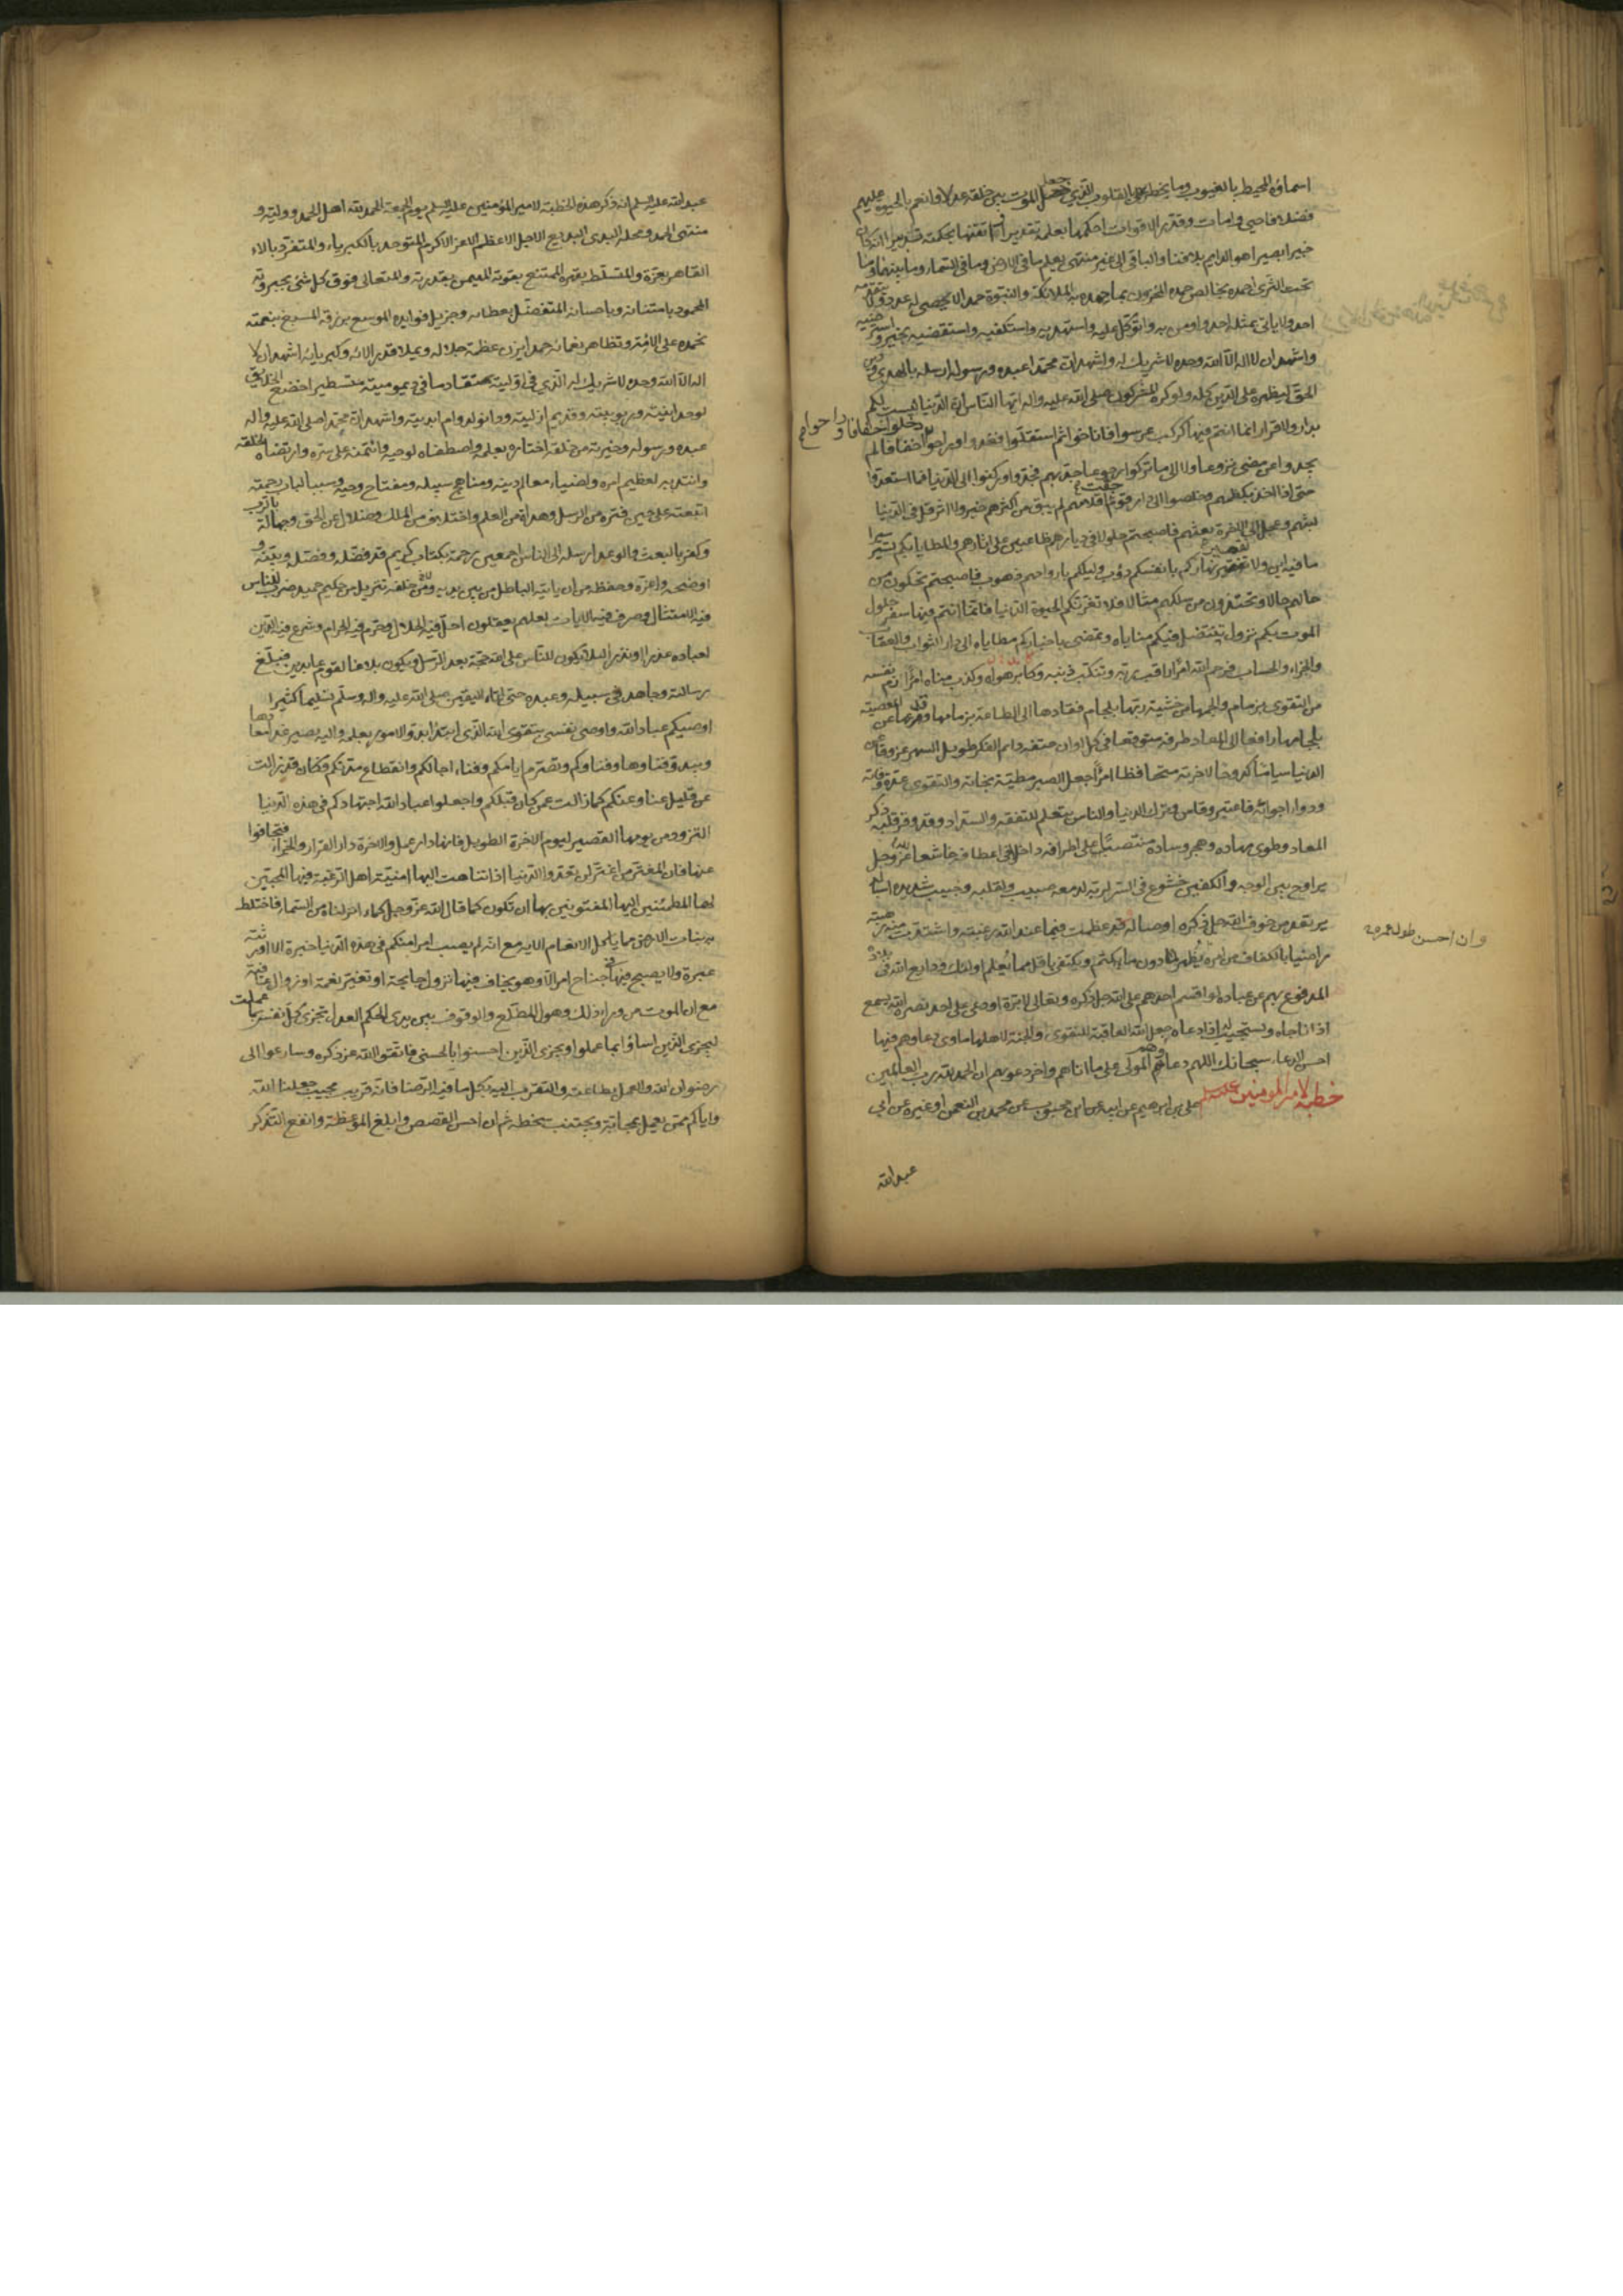 اسماؤه المحيط بالغيوب وما يخطر على القلوب الذي جعل الموت بين خلقه عدلا وانعم بالحيوة عليهم
فضلا فاحيي وامات وقدر الاقوات احكمها بعلمه تقديرا واتقنها بحكمته تدبيرا انه كان
خبيرا بصيرا هو الدايم بلا فناء والباقي الى غير منتهى يعلم ما في الارض وما في السماء وما بينهما وما
تحت الثرى احمده بخالص حمده المخزون بما حمده به الملائكة والنبيون حمدا لا يحصى له عدد ولا يتقدمه
احد ولا ياتي بمثله احد واومن به واتوكل عليه واستهديه واستكفيه واستقضيه بخير واسترضيه
واشهد ان لا اله الا الله وحده لا شريك له واشهد ان محمدا عبده ورسوله ارسله بالهدى ودين
الحق ليظهره على الدين كله ولو كره المشركون صلى الله عليه واله ايها الناس ان الدنيا ليست لكم
بدار ولا قرار انما انتم فيها كركب عرسوا فاناخوا ثم استقلوا فغدوا وراحوا دخلوا خفافا وراحوا خفافا لم
يجدوا عن مضي نزوعا ولا الى ما تركوا رجوعا جد بهم فجدوا وركنوا الى الدنيا فما استعدوا
حتى اذا اخذ بكظمهم وخلصوا الى دار قوم جفت اقلامهم لم يبق من اكثرهم خبر ولا اثر قل في الدنيا
لبثهم وعجل الى الاخرة بعثهم فاصبحتم حلولا في ديارهم ظاعنين على اثارهم والمطايا بكم تسير سيرا
ما فيه اين ولا تفتير نهاركم بانفسكم دؤب وليلكم بارواحكم ذهوب فاصبحتم تحكون من
حالهم حالا وتحتذون من مسلكهم مثالا فلا تغرنكم الحيوة الدنيا فانما انتم فيها سفر حلول
الموت بكم نزول تنتضل فيكم مناياه وتمضي باخباركم مطاياه الى دار الثواب والعقاب
والجزاء والحساب فرحم الله امرأ راقب ربه وتنكب ذنبه وكابر هواه وكذب مناه امرأ زم نفسه
من التقوى بزمام والجمها من خشية ربها بلجام فقادها الى الطاعة بزمامها وقدعها عن المعصية
بلجامها رافعا الى المعاد طرفه متوقعا في كل اوان حتفه دايم الفكر طويل السهر عزوفا عن
الدنيا سأما كدوحا لاخرته متحافظا امرأ جعل الصبر مطية نجاته والتقوى عدة وفاته
ودواء اجوائه فاعتبر وقاس وترك الدنيا والناس يتعلم للتفقه والسداد وقد وقر قلبه ذكر
المعاد وطوى مهاده وهجر وساده منتصبا على اطرافه داخلا في اعطافه خاشعا لله عز وجل
يراوح بين الوجه والكفين خشوع في السر لربه لدمعه صبيب ولقلبه وجيب شديدة اسباله
يرتعد من خوف الله جل ذكره اوصاله قد عظمت فيما عند الله رغبته واشتدت منه رهبته
راضيا بالكفاف من امره يظهر دون ما يكتم ويكتفي باقل مما يعلم اولئك ودايع الله في بلاده
المدفوع بهم عن عباده لو اقسم احدهم على الله جل ذكره وتعالى لابره او دعى على احد نصره الله يسمع
اذا ناجاه ويستجيب له اذا دعاه جعل الله العاقبة للتقوى والجنة لاهلها ماوى دعاوهم فيها
احسن الدعاء سبحانك اللهم دعاهم المولى على ما اتاهم واخر دعوهم ان الحمد لله رب العالمين
خطبة لامير المومنين عليه السلم علي بن ابرهيم عن ابيه عن ابن محبوب عن محمد بن النعمن او غيره عن ابي
عبد الله
وان احسن
عبد الله عليه السلم انه ذكر هذه الخطبة لامير المؤمنين عليه السلم يوم الجمعة الحمد لله اهل الحمد ووليه و
منتهى الحمد ومحله البدئ البديع الاجل الاعظم الاعز الاكرم المتوحد بالكبرياء والمتفرد بالالاء
القاهر بعزه والمتسلط بقهره الممتنع بقوته المهيمن بقدرته والمتعالى فوق كل شئ بجبروته
المحمود بامتنانه وباحسانه المتفضل بعطائه وجزيل فوايده الموسع برزقه المسبغ بنعمته
نحمده على الائه وتظاهر نعمائه حمدا يزن عظمة جلاله ويملا قدر الائه وكبريائه اشهد ان لا
اله الا الله وحده لا شريك له الذي كان في اوليته متقادما في ديموميته متسيطرا خضع الخلايق
لوحدانيته وربوبيته وقديم ازليته ودانوا لدوام ابديته واشهد ان محمدا صلى الله عليه واله
عبده ورسوله وخيرته من خلقه اختاره بعلمه واصطفاه لوحيه وائتمنه على سره وارتضاه لخلقه
وانتدبه لعظيم امره ولضياء معالم دينه ومناهج سبيله ومفتاح وحيه وسببا لباب رحمته
ابتعثه على حين فترة من الرسل وهداة من العلم واختلاف من الملل وضلال عن الحق وجهالة بالرب
وكفر بالبعث والوعد ارسله الى الناس اجمعين رحمة بكتاب كريم قد فضله وفصله وبينه و
اوضحه واعزه وحفظه من ان ياتيه الباطل من بين يديه ومن خلفه تنزيل من حكيم حميد ضرب للناس
فيه الامثال وصرف فيه الايات لعلهم يعقلون احل فيه الحلال وحرم فيه الحرام وشرع فيه الدين
لعباده عذرا ونذرا لئلا يكون للناس على الله حجة بعد الرسل ويكون بلاغا لقوم عابدين فبلغ
رسالته وجاهد في سبيله وعبده حتى اتاه اليقين صلى الله عليه واله وسلم تسليما كثيرا
اوصيكم عباد الله واوصي نفسي بتقوى الله الذي ابتدا الامور بعلمه واليه يصير غدا معادها
وبيده فناوها وفناوكم وتصرم ايامكم وفناء اجالكم وانقطاع مدتكم فكان قد زالت
عن قليل عنا وعنكم كما زالت عمن كان قبلكم واجعلوا عباد الله اجتهادكم في هذه الدنيا
التزود من يومها القصير ليوم الاخرة الطويل فانها دار عمل والاخرة دار القرار والجزاء فتجافوا
عنها فان المغتر من اغتر لن تعدوا الدنيا اذا تناهت اليها امنية اهل الرغبة فيها المحبين
لها المطمئنين اليها المفتونين بها ان تكون كما قال الله عز وجل كماء انزلناه من السماء فاختلط
به نبات الارض مما ياكل الانعام الاية مع انه لم يصب امرا منكم في هذه الدنيا حبرة الا اورثته
عبرة ولا يصبح فيها في جناح امن الا وهو يخاف فيها نزول جايحة او تغير نعمة او زوال عافية
مع ان الموت من وراء ذلك وهول المطلع والوقوف بين يدي الحكم العدل تجزى كل نفس بما عملت
ليجزي الذين اساؤا بما عملوا ويجزي الذين احسنوا بالحسنى فاتقوا الله عز ذكره وسارعوا الى
رضوان الله والعمل بطاعته والتقرب اليه بكل ما فيه الرضا فانه قريب مجيب جعلنا الله
واياكم ممن يعمل بمحابه ويجتنب سخطه ثم ان احسن القصص وابلغ الموعظة وانفع التذكر